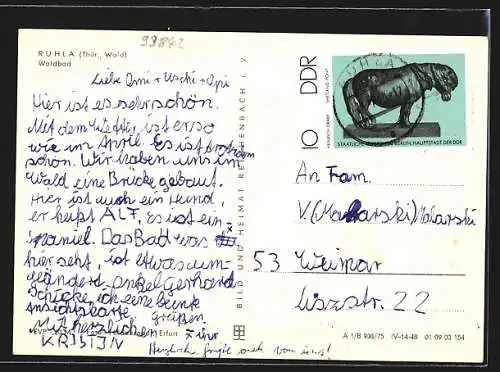 99842
RUHLA (Thür. Wald)
Waldbad
Liebe Omi + Uschi + Opi
Hier ist es sehr schön.
Mit dem Wetter, ist es so
wie im April. Es ist trotzdem
schön. Wir haben uns im
Wald eine Brücke gebaut.
Hier ist auch ein Hund,
er heißt ALF, Es ist ein
Spaniel. Das Bad was
hier seht, ist etwas um-
geändert. Onkel Gerhard
schicke ich eine bunte
Ansichtskarte.
Mit herzlichen Grüßen
KRISTIN
Herzliche Grüße auch von uns!
BILD UND HEIMAT REICHENBACH i. V.
10 DDR
HEINRICH DRAKE
SHETLAND-PONY
STAATLICHE MUSEEN ZU BERLIN, HAUPTSTADT DER DDR
An Fam.
V.
53 Weimar
Lisztstr. 22
Erfurt
A 1/B 908/75 IV-14-48 01 09 03 154